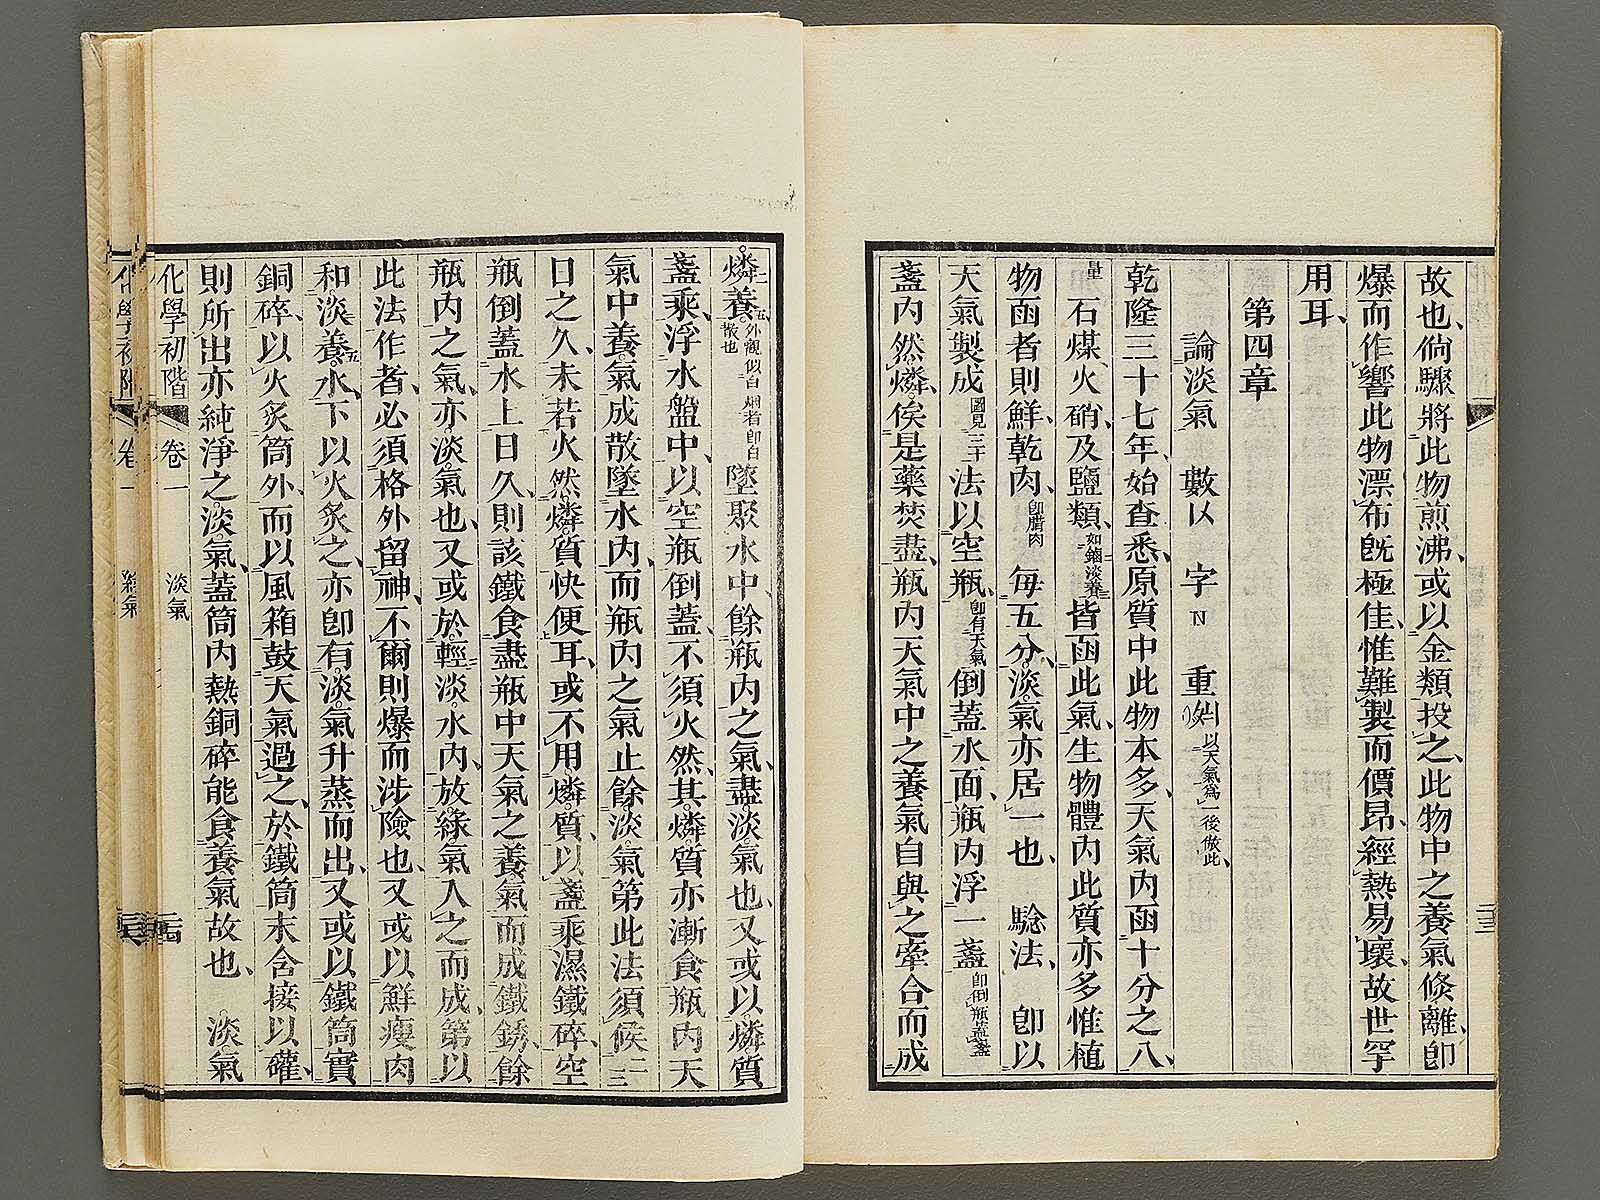 故也、倘驟將此物煎沸、或以金類投之、此物中之養氣倏離、卽
爆而作響此物漂布旣極佳、惟難製而價昂、經熱易壞、故世罕
用耳、
第四章
論淡氣 數以 字 N 重 以天氣爲一後倣此、
乾隆三十七年、始查悉、原質中此物本多、天氣內函十分之八、
石煤火硝、及鹽類、如鏀淡養皆函此氣、生物體內此質亦多惟植
物函者則鮮、乾肉、卽腊肉 每五分、淡氣亦居一也、 騐法、 卽以
天氣製成 圖見三十 法以空瓶、卽有天氣 倒蓋水面、瓶內浮一盞、卽倒瓶蓋盞
盞內然燐、俟是藥焚盡、瓶內天氣中之養氣自與之牽合而成
量
燐養五 外觀似白烟者卽白散也 墜聚水中、餘瓶內之氣、盡淡氣也、又或以燐質
盞乘浮水盤中、以空瓶倒蓋、不須火然、其燐質亦漸食瓶內天
氣中養氣成散墜水內、而瓶內之氣止餘淡氣第此法須候二三
日之久、未若火然燐質快便耳、或不用燐質、以盞乘濕鐵碎、空
瓶倒蓋水上日久、則該鐵食盡瓶中天氣之養氣而成鐵銹、餘
瓶內之氣、亦淡氣也、又或於輕淡水內、放綠氣入之而成、第以
此法作者、必須格外留神、不爾則爆而涉險也、又或以鮮瘦肉
和淡養五水、下以火炙之、亦卽有淡氣升蒸而出、又或以鐵筒實
銅碎、以火炙筒外、而以風箱鼓天氣過之、於鐵筒末含接以礶、
則所出亦純淨之淡氣、蓋筒內熱銅碎能食養氣故也、 淡氣
化學初階 卷一 淡氣
化學初階 卷一 綠氣